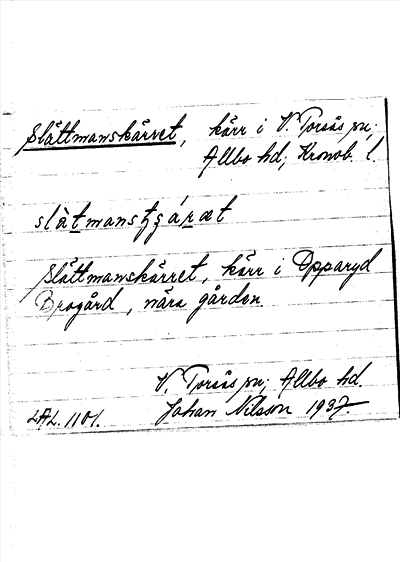 Slättmanskärret, kärr i V. Torsås sn;
Allbo hd; Kronob. l.
Slättmanskärret, kärr i Opparyd
Brogård, nära gården.
V. Torsås sn; Allbo hd.
LAL. 1101. Johan Nilsson 1937.